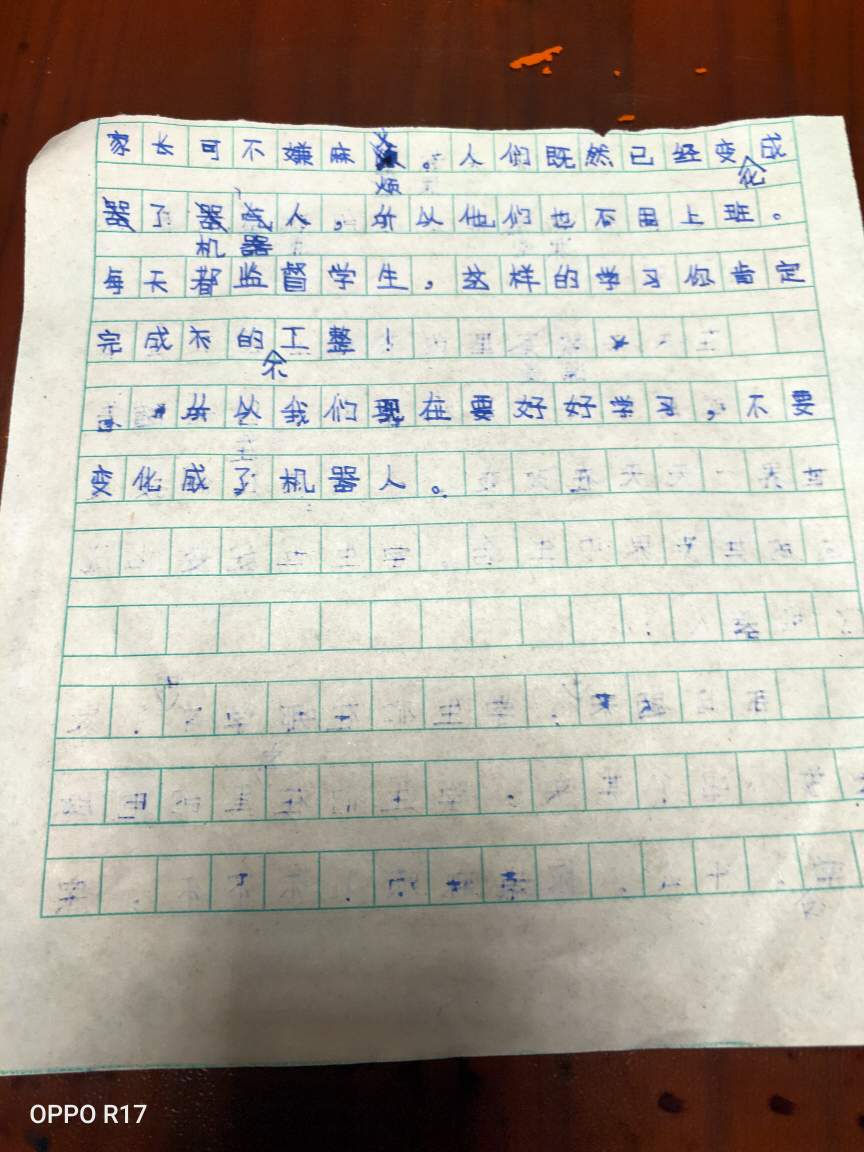 家长可不嫌麻烦。人们既然已经变化成
器了机器人，所以他们也不用上班。
每天都监督学生，这样的学习你肯定
完成不的不工整！
所以我们现在要好好学习，不要
变化成了机器人。
OPPO R17